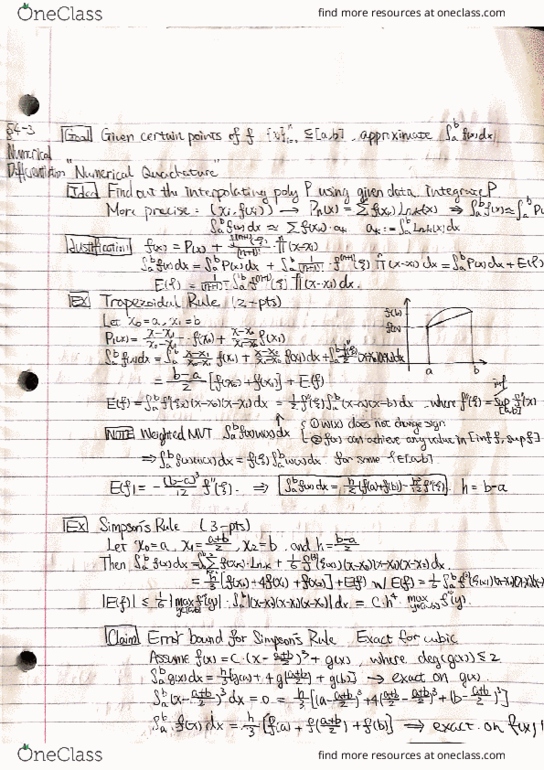 OneClass
find more resources at oneclass.com
§4-3
Numerical
Differentiation
Goal Given certain points of f {xi}ⁿᵢ₌₁ ⊆ [a,b], approximate ∫ₐᵇ f(x)dx
"Numerical Quadrature"
Idea Find out the interpolating poly P using given data. Integrate P
More precise: (xi, f(xi)) → Pn(x) = Σ f(xk) Ln,k(x) ⇒ ∫ₐᵇ f(x) ≈ ∫ₐᵇ P
∫ₐᵇ f(x)dx ≈ Σ f(xk) · ak ak := ∫ₐᵇ Ln,k(x)dx
Justification f(x) = P(x) + f⁽ⁿ⁺¹⁾(ξ)/(n+1)! · Π(x-xi)
∫ₐᵇ f(x)dx = ∫ₐᵇ P(x)dx + ∫ₐᵇ 1/(n+1)! · f⁽ⁿ⁺¹⁾(ξ) Π(x-xi)dx = ∫ₐᵇ P(x)dx + E(f)
E(f) = 1/(n+1)! ∫ₐᵇ f⁽ⁿ⁺¹⁾(ξ) Π(x-xi)dx.
EX Trapezoidal Rule (2-pts)
Let x₀=a, x₁=b
P₁(x) = (x-x₁)/(x₀-x₁) · f(x₀) + (x-x₀)/(x₁-x₀) f(x₁)
f(b)
f(a)
a b
∫ₐᵇ f(x)dx = ∫ₐᵇ (x-x₁)/(x₀-x₁) f(x₀) + (x-x₀)/(x₁-x₀) f(x₁)dx +
= (b-a)/2 [f(x₀) + f(x₁)] + E(f)
E(f) = (x-x₀)(x-x₁)dx = ½ f''(ξ) ∫ₐᵇ (x-a)(x-b)dx where
NOTE Weighted MVT ∫ₐᵇ f(x)w(x)dx
① w(x) does not change sign
② f(x) can achieve any value in [inf f, sup f]
⇒ ∫ₐᵇ f(x)w(x)dx = f(ξ) ∫ₐᵇ w(x)dx for some ξ∈[a,b]
E(f) = -(b-a)³/12 f''(ξ). ⇒ ∫ₐᵇ f(x)dx = h/2 (f(a)+f(b)) - h³/12 f''(ξ) h = b-a
EX Simpson's Rule (3-pts)
Let x₀=a, x₁=(a+b)/2, x₂=b and h=(b-a)/2
Then ∫ₐᵇ f(x)dx = f(xk) · Ln,k + (x-x₀)(x-x₁)(x-x₂)dx.
= h/3 [f(x₀) + 4f(x₁) + f(x₂)] + E(f) w/ E(f) =
|E(f)| ≤ ∫ₐᵇ |(x-x₀)(x-x₁)(x-x₂)|dx = C·h⁴ · max
Claim Error bound for Simpson's Rule Exact for cubic
Assume f(x) = C·(x - (a+b)/2)³ + g(x), where deg(g(x)) ≤ 2
∫ₐᵇ g(x)dx = h/3 [g(a) + 4g((a+b)/2) + g(b)] → exact on g(x).
∫ₐᵇ (x-(a+b)/2)³ dx = 0 = h/3 [(a-(a+b)/2)³ + 4((a+b)/2 - (a+b)/2)³ + (b-(a+b)/2)³]
∫ₐᵇ f(x) dx = h/3 [f(a) + f((a+b)/2) + f(b)] → exact on f(x)
OneClass
find more resources at oneclass.com